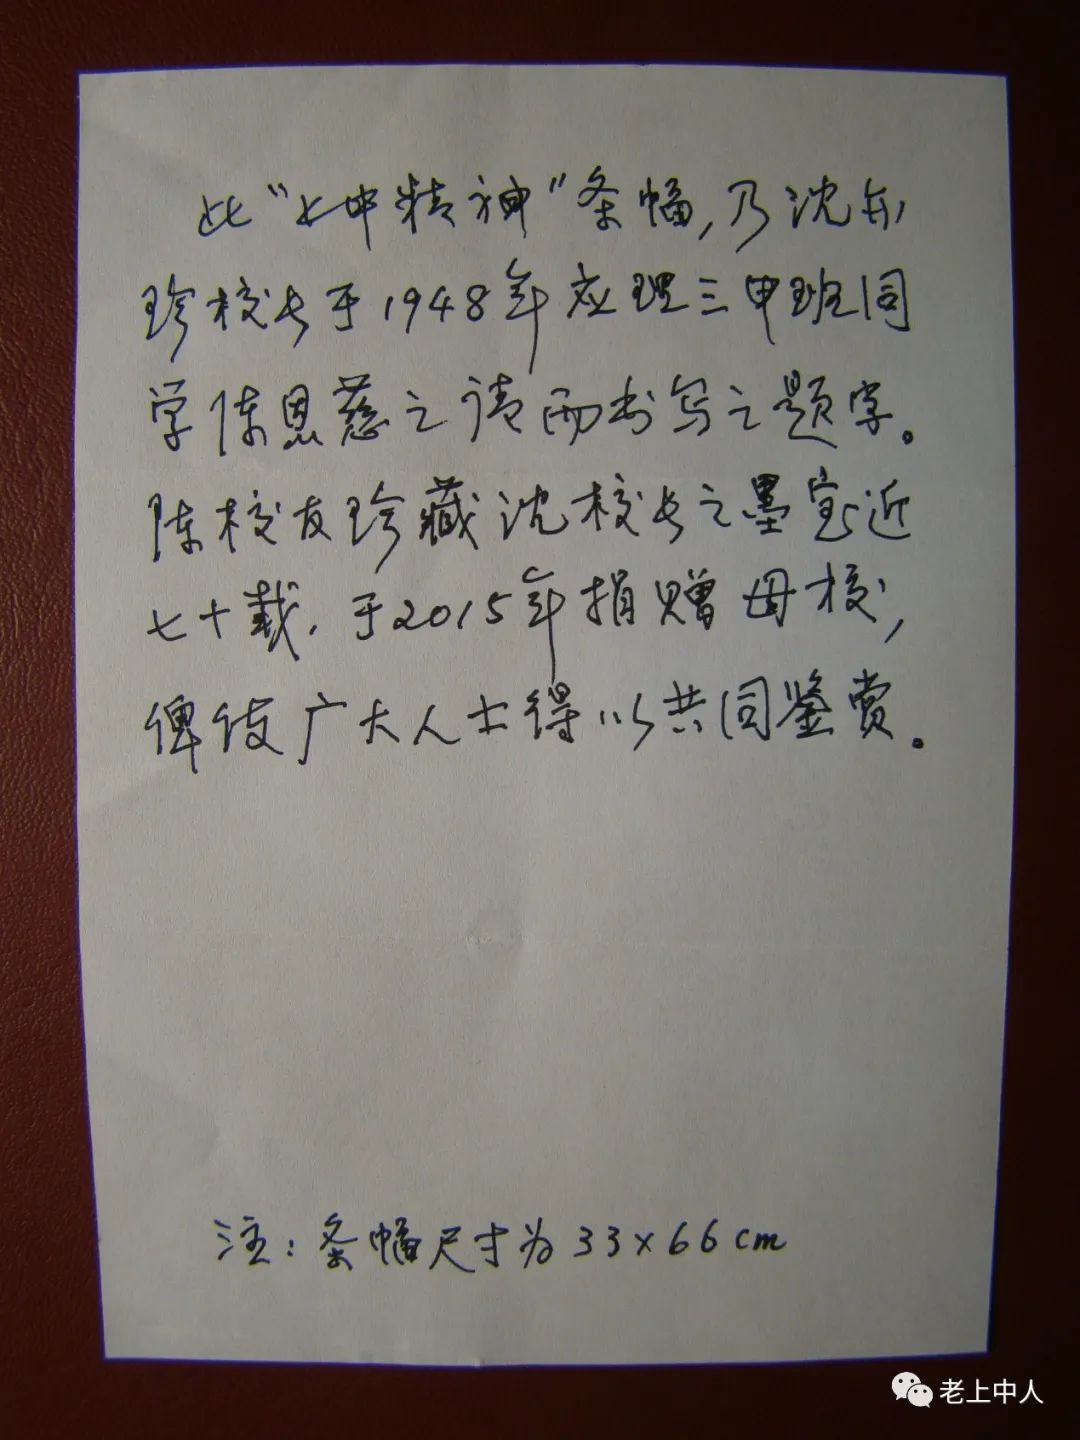 此“上中精神”条幅，乃沈亦
珍校长于1948年应理三甲班同
学陈恩慈之请而书写之题字。
陈校友珍藏沈校长之墨宝近
七十载，于2015年捐赠母校，
俾使广大人士得以共同鉴赏。
注：条幅尺寸为33×66cm
老上中人